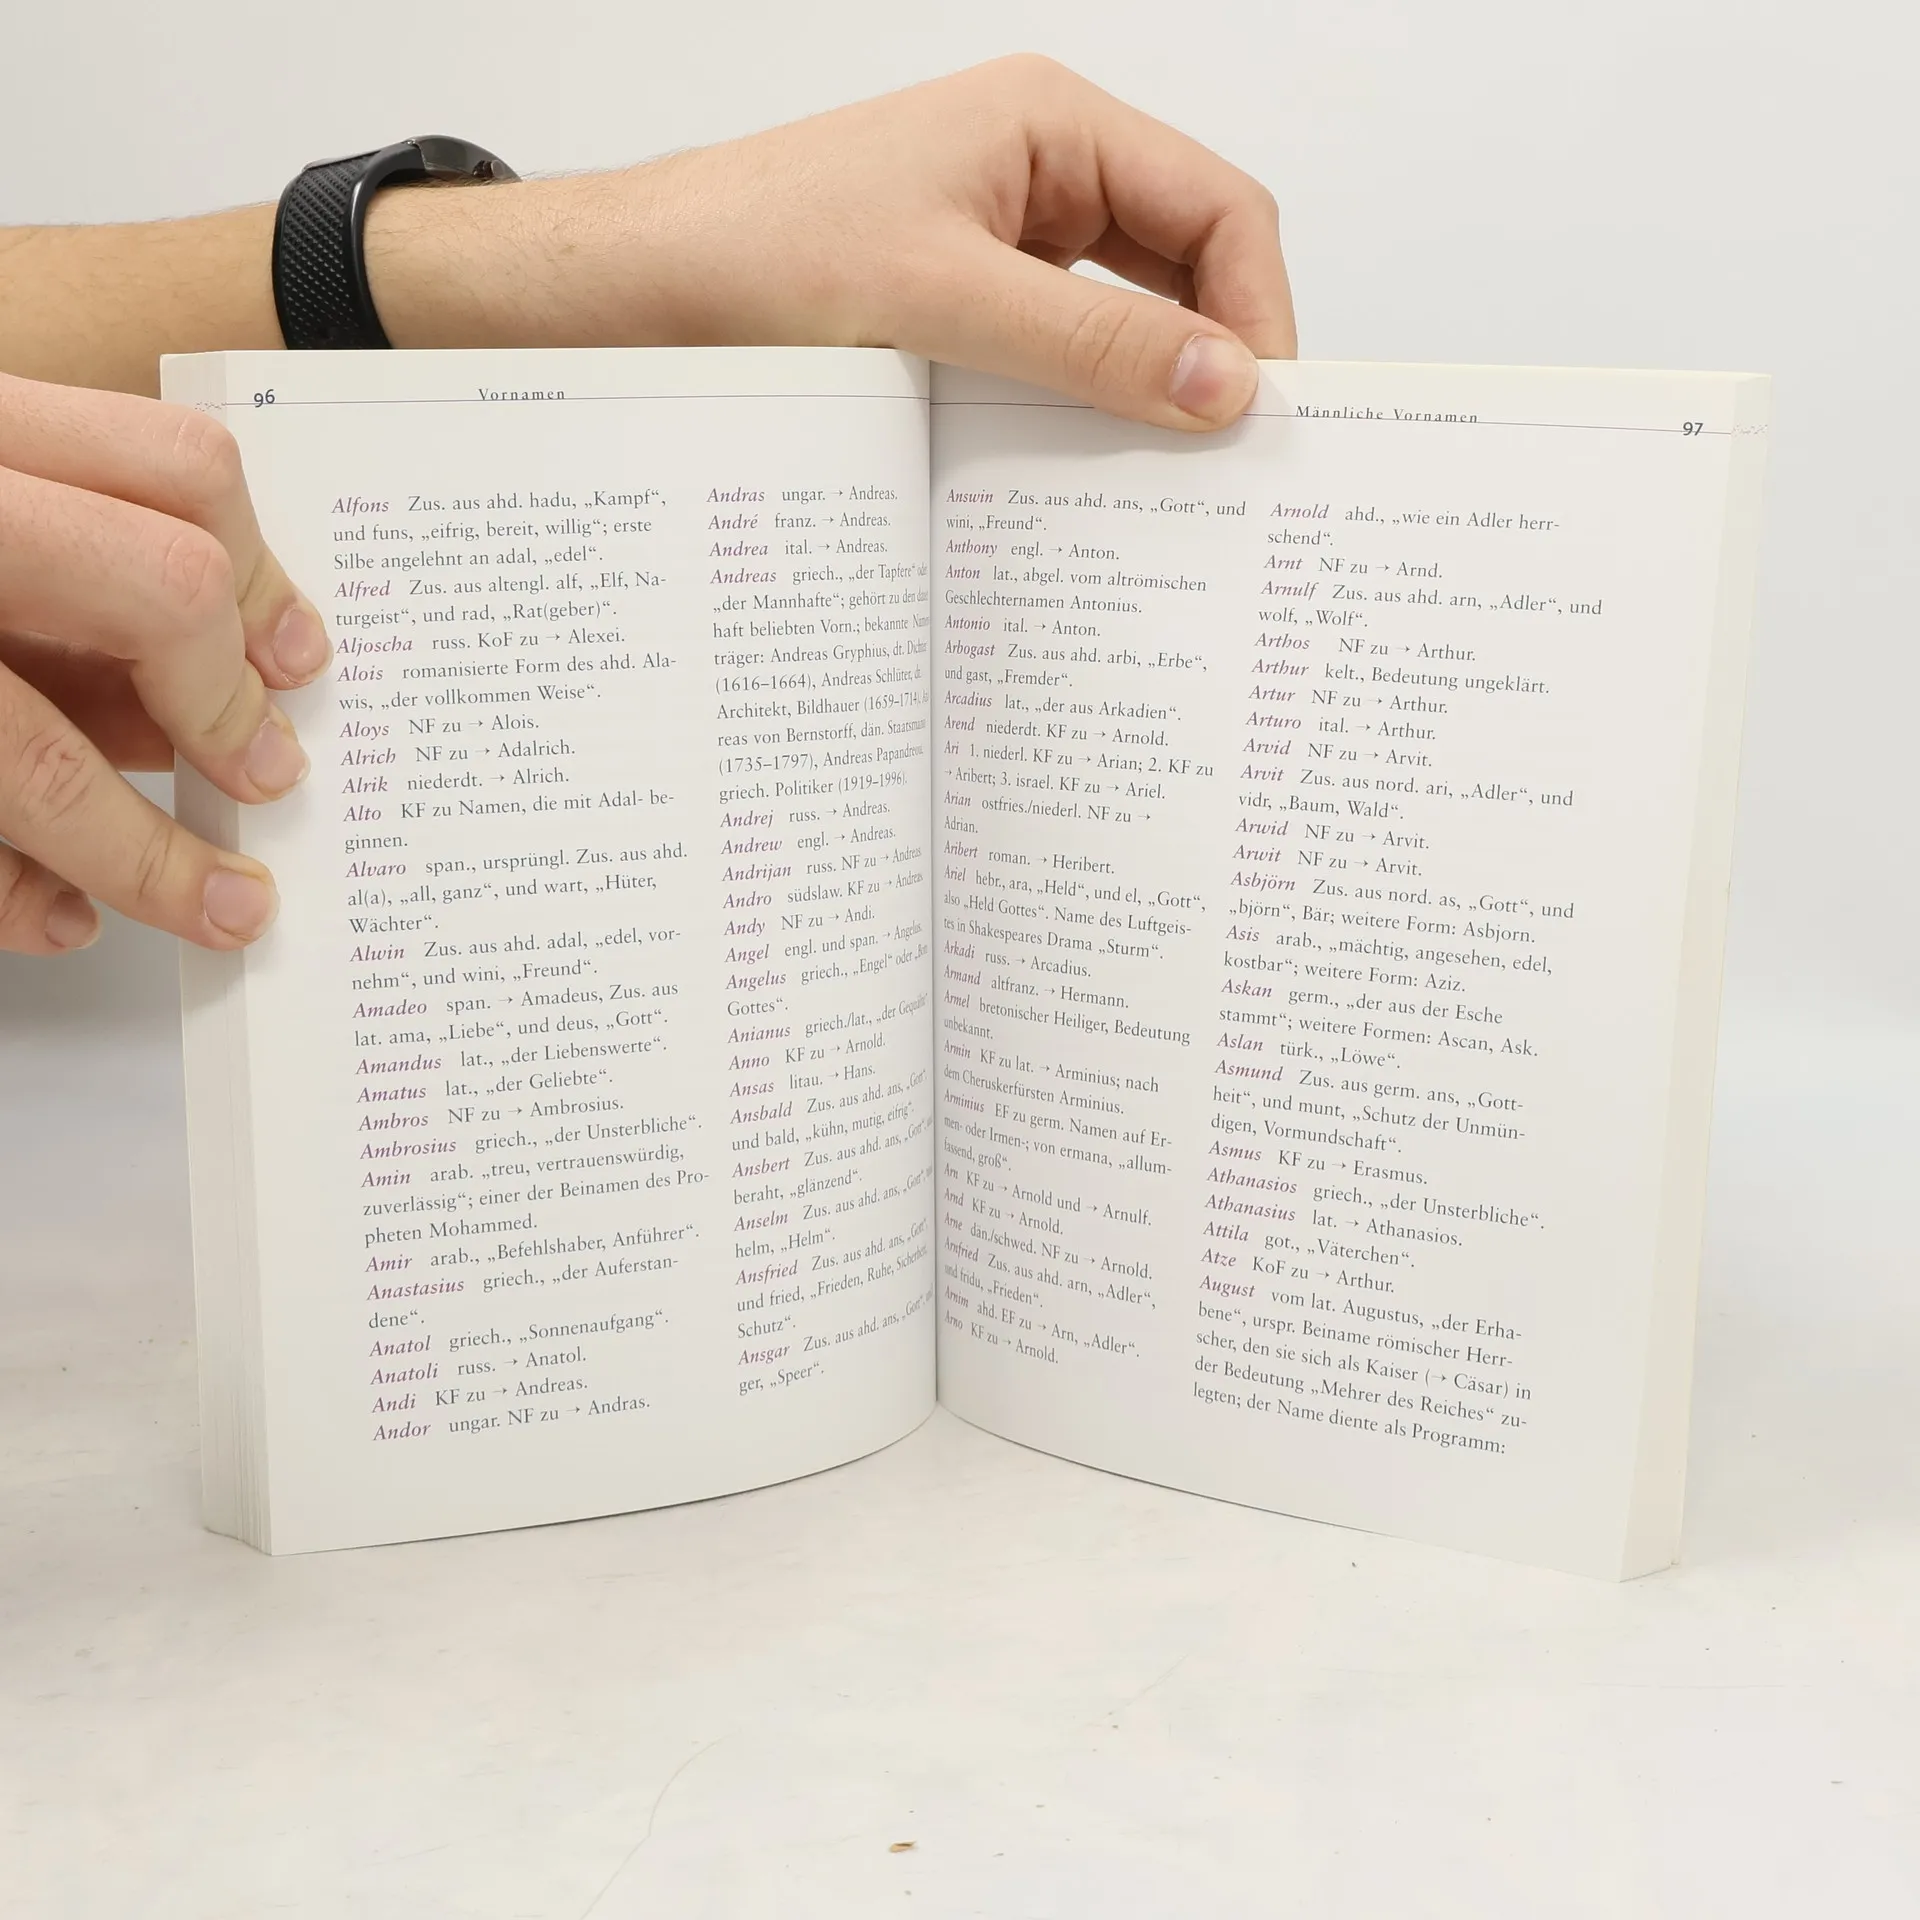 96
Vornamen
Alfons Zus. aus ahd. hadu, „Kampf“,
und funs, „eifrig, bereit, willig“; erste
Silbe angelehnt an adal, „edel“.
Alfred Zus. aus altengl. alf, „Elf, Na-
turgeist“, und rad, „Rat(geber)“.
Aljoscha russ. KoF zu → Alexei.
Alois romanisierte Form des ahd. Ala-
wis, „der vollkommen Weise“.
Aloys NF zu → Alois.
Alrich NF zu → Adalrich.
Alrik niederdt. → Alrich.
Alto KF zu Namen, die mit Adal- be-
ginnen.
Alvaro span., ursprüngl. Zus. aus ahd.
al(a), „all, ganz“, und wart, „Hüter,
Wächter“.
Alwin Zus. aus ahd. adal, „edel, vor-
nehm“, und wini, „Freund“.
Amadeo span. → Amadeus, Zus. aus
lat. ama, „Liebe“, und deus, „Gott“.
Amandus lat., „der Liebenswerte“.
Amatus lat., „der Geliebte“.
Ambros NF zu → Ambrosius.
Ambrosius griech., „der Unsterbliche“.
Amin arab. „treu, vertrauenswürdig,
zuverlässig“; einer der Beinamen des Pro-
pheten Mohammed.
Amir arab., „Befehlshaber, Anführer“.
Anastasius griech., „der Auferstan-
dene“.
Anatol griech., „Sonnenaufgang“.
Anatoli russ. → Anatol.
Andi KF zu → Andreas.
Andor ungar. NF zu → Andras.
Andras ungar. → Andreas.
André franz. → Andreas.
Andrea ital. → Andreas.
Andreas griech., „der Tapfere“
„der Mannhafte“; gehört zu den
haft beliebten Vorn.; bekannte
träger: Andreas Gryphius, dt. Dichter
(1616–1664), Andreas Schlüter, dt.
Architekt, Bildhauer (1659–1714),
reas von Bernstorff, dän. Staatsmann
(1735–1797), Andreas Papandreou,
griech. Politiker (1919–1996).
Andrej russ. → Andreas.
Andrew engl. → Andreas.
Andrijan russ. NF zu → Andreas
Andro südslaw. KF zu → Andreas
Andy NF zu → Andi.
Angel engl. und span. → Angelus.
Angelus griech., „Engel“ oder
Gottes“.
Anianus griech./lat., „der
Anno KF zu → Arnold.
Ansas litau. → Hans.
Ansbald Zus. aus ahd. ans, „Gott“
und bald, „kühn, mutig, eifrig“.
Ansbert Zus. aus ahd. ans, „Gott“,
beraht, „glänzend“.
Anselm Zus. aus ahd. ans, „Gott“,
helm, „Helm“.
Ansfried Zus. aus ahd. ans, „Gott“,
und fried, „Frieden, Ruhe, Sicherheit,
Schutz“.
Ansgar Zus. aus ahd. ans, „Gott“,
ger, „Speer“.
Männliche Vornamen
97
Answin Zus. aus ahd. ans, „Gott“, und
wini, „Freund“.
Anthony engl. → Anton.
Anton lat., abgel. vom altrömischen
Geschlechternamen Antonius.
Antonio ital. → Anton.
Arbogast Zus. aus ahd. arbi, „Erbe“,
und gast, „Fremder“.
Arcadius lat., „der aus Arkadien“.
Arend niederdt. KF zu → Arnold.
Ari 1. niederl. KF zu → Arian; 2. KF zu
→ Aribert; 3. israel. KF zu → Ariel.
Arian ostfries./niederl. NF zu →
Adrian.
Aribert roman. → Heribert.
Ariel hebr., ara, „Held“, und el, „Gott“,
also „Held Gottes“. Name des Luftgeis-
tes in Shakespeares Drama „Sturm“.
Arkadi russ. → Arcadius.
Armand altfranz. → Hermann.
Armel bretonischer Heiliger, Bedeutung
unbekannt.
Armin KF zu lat. → Arminius; nach
dem Cheruskerfürsten Arminius.
Arminius EF zu germ. Namen auf Er-
men- oder Irmen-; von ermana, „allum-
fassend, groß“.
Arn KF zu → Arnold und → Arnulf.
Arnd KF zu → Arnold.
Arne dän./schwed. NF zu → Arnold.
Arnfried Zus. aus ahd. arn, „Adler“,
und fridu, „Frieden“.
Arnim ahd. EF zu → Arn, „Adler“.
Arno KF zu → Arnold.
Arnold ahd., „wie ein Adler herr-
schend“.
Arnt NF zu → Arnd.
Arnulf Zus. aus ahd. arn, „Adler“, und
wolf, „Wolf“.
Arthos NF zu → Arthur.
Arthur kelt., Bedeutung ungeklärt.
Artur NF zu → Arthur.
Arturo ital. → Arthur.
Arvid NF zu → Arvit.
Arvit Zus. aus nord. ari, „Adler“, und
vidr, „Baum, Wald“.
Arwid NF zu → Arvit.
Arwit NF zu → Arvit.
Asbjörn Zus. aus nord. as, „Gott“, und
„björn“, Bär; weitere Form: Asbjorn.
Asis arab., „mächtig, angesehen, edel,
kostbar“; weitere Form: Aziz.
Askan germ., „der aus der Esche
stammt“; weitere Formen: Ascan, Ask.
Aslan türk., „Löwe“.
Asmund Zus. aus germ. ans, „Gott-
heit“, und munt, „Schutz der Unmün-
digen, Vormundschaft“.
Asmus KF zu → Erasmus.
Athanasios griech., „der Unsterbliche“.
Athanasius lat. → Athanasios.
Attila got., „Väterchen“.
Atze KoF zu → Arthur.
August vom lat. Augustus, „der Erha-
bene“, urspr. Beiname römischer Herr-
scher, den sie sich als Kaiser (→ Cäsar) in
der Bedeutung „Mehrer des Reiches“ zu-
legten; der Name diente als Programm: